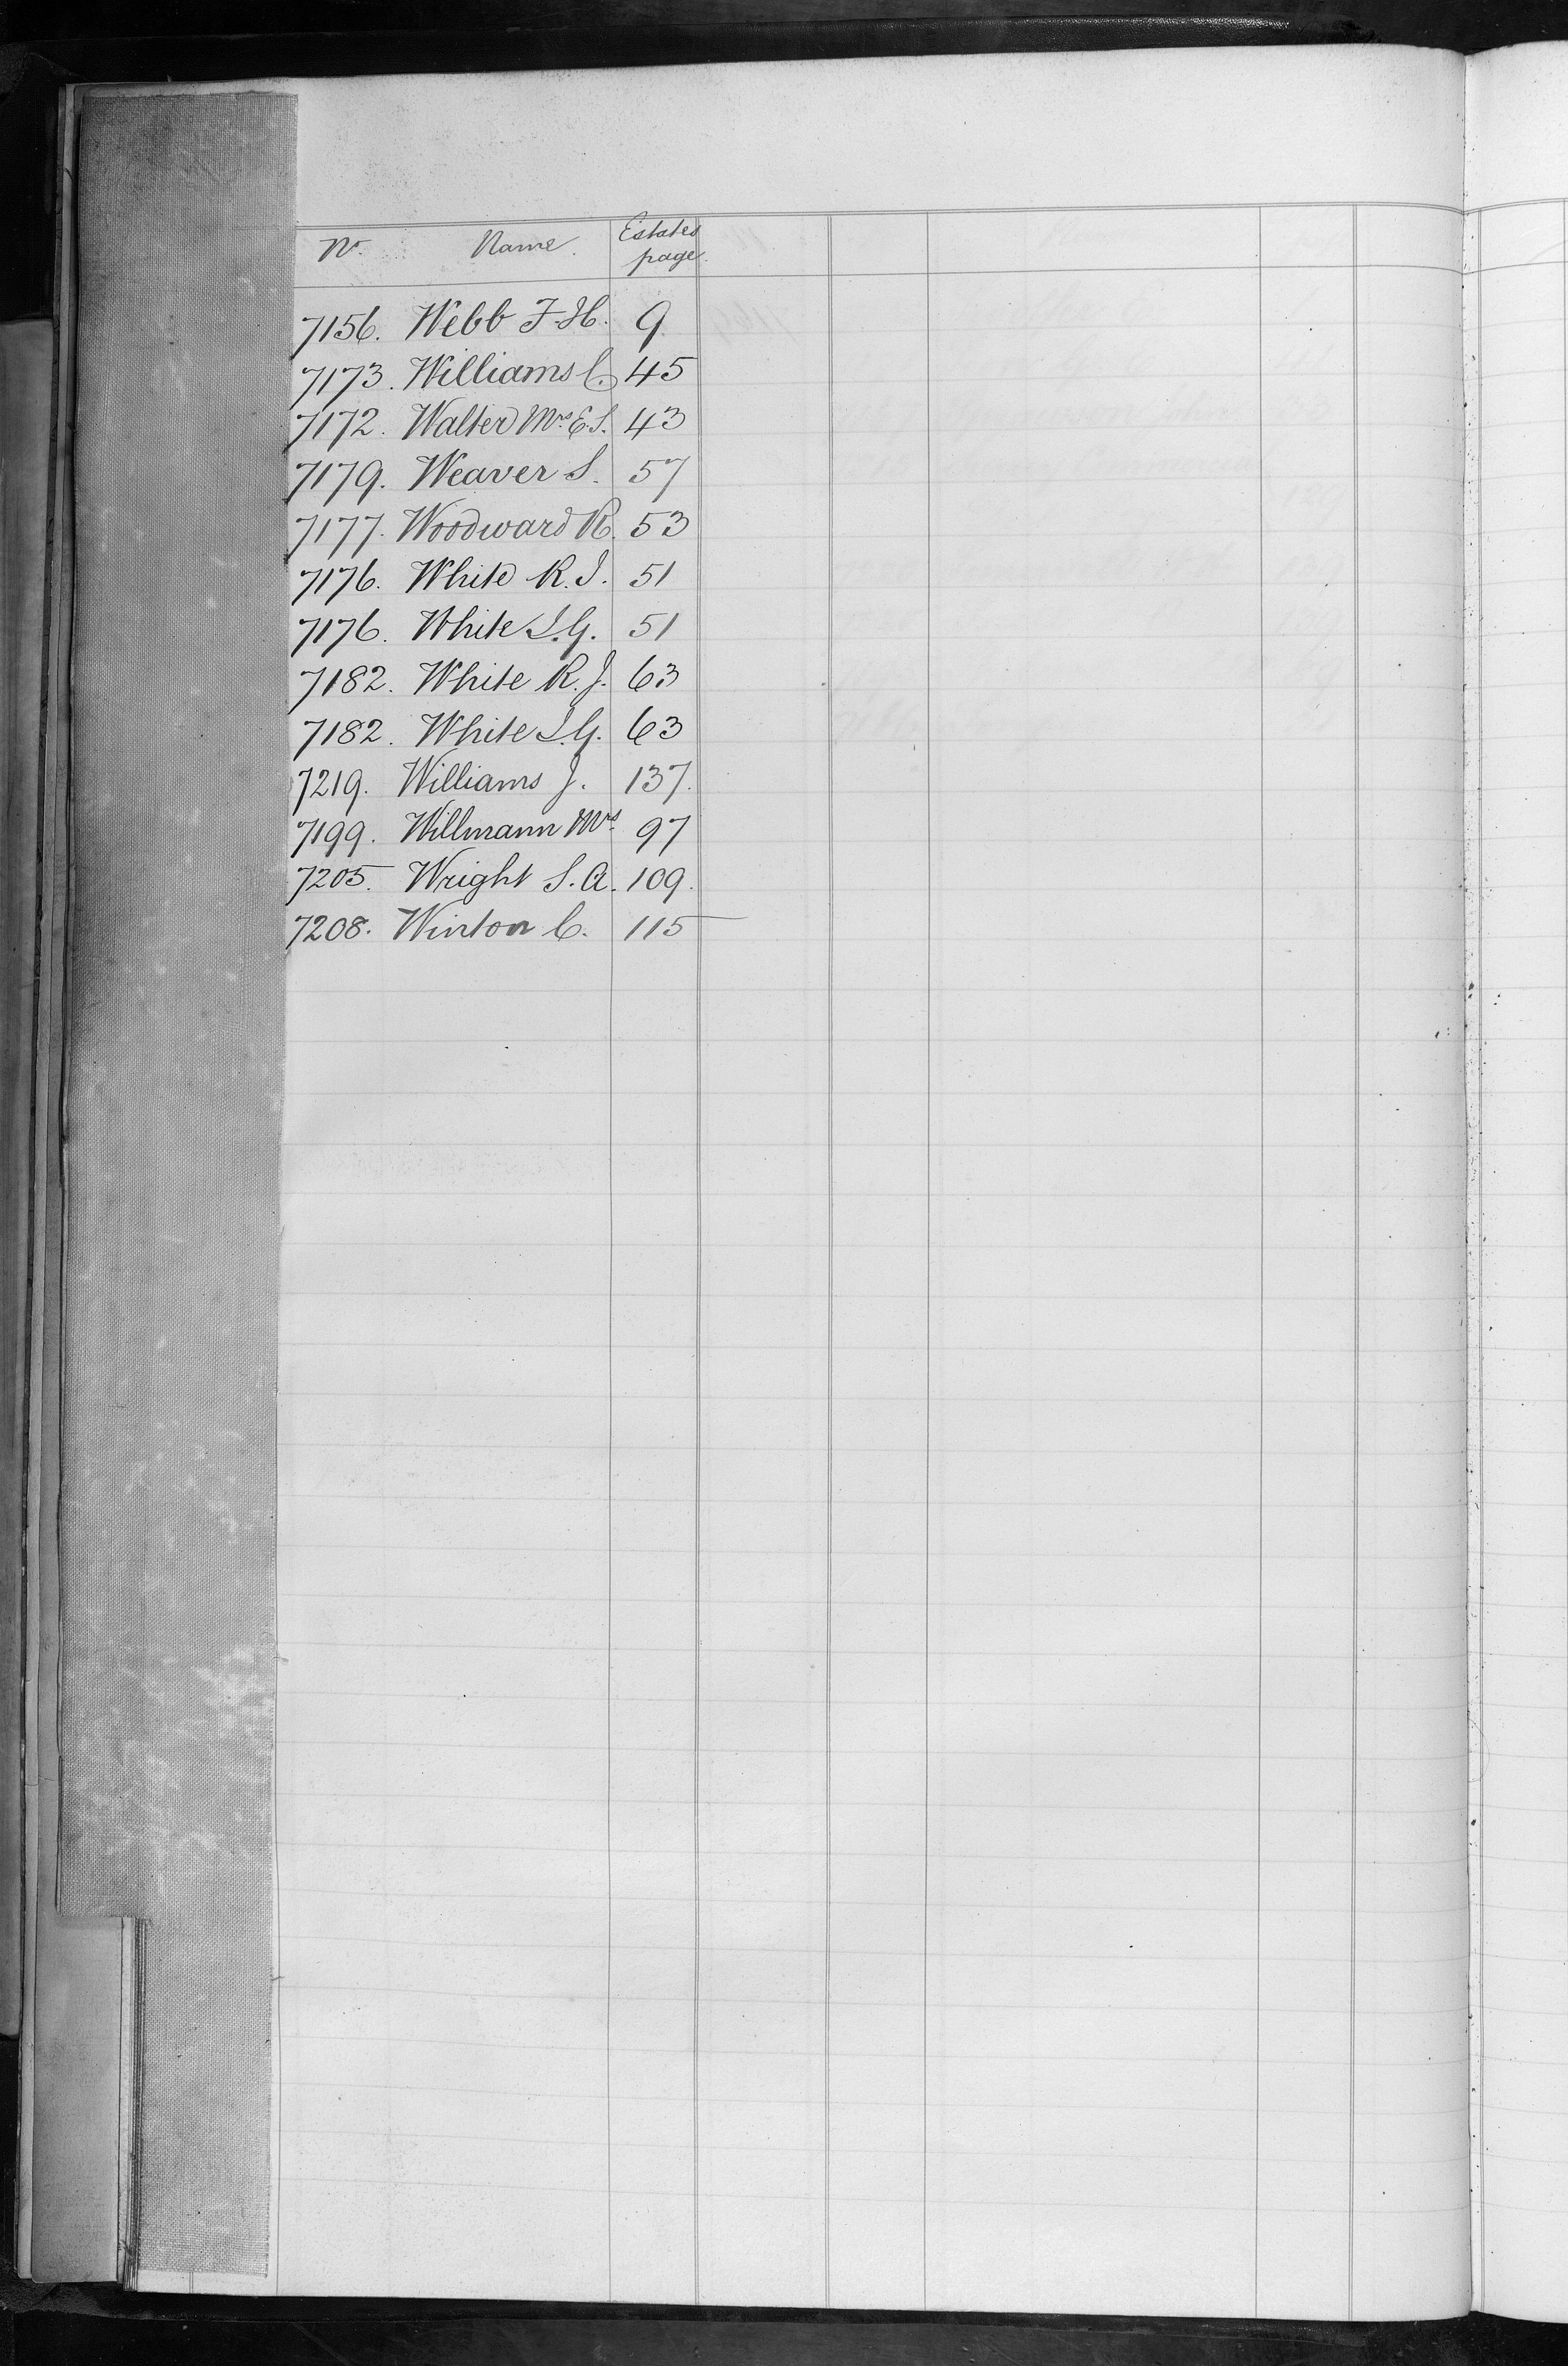 No. Name. Estates page.
7156. Webb F. H. 9
7173. Williams C. 45
7172. Walter Mrs. E. S. 43
7179. Weaver S. 57
7177. Woodward R. 53
7176. White R. J. 51
7176. White S. G. 51
7182. White R. J. 63
7182. White S. G. 63
7219. Williams J. 137.
7199. Willmann Mrs. 97
7205. Wright S. A. 109.
7208. Winton C. 115